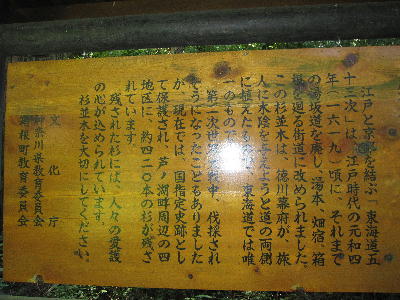 江戸と京都を結ぶ「東海道五
十三次」は、江戸時代の元和四
年（一六一九）頃に、それまで
の湯坂道を廃し、湯本、畑宿、箱
根を廻る街道に改められました。
この杉並木は、徳川幕府が、旅
人に木陰を与えようと道の両側
に植えたもので、東海道では唯
一のものです。
第二次世界大戦中、伐採され
そうになったこともありました
が、現在では、国指定史跡とし
て保護され、芦ノ湖畔周辺の四
地区に、約四二〇本の杉が残さ
れています。
残された杉には、人々の愛護
の心が込められています。
杉並木を大切にしてください。
文化庁
神奈川県教育委員会
箱根町教育委員会